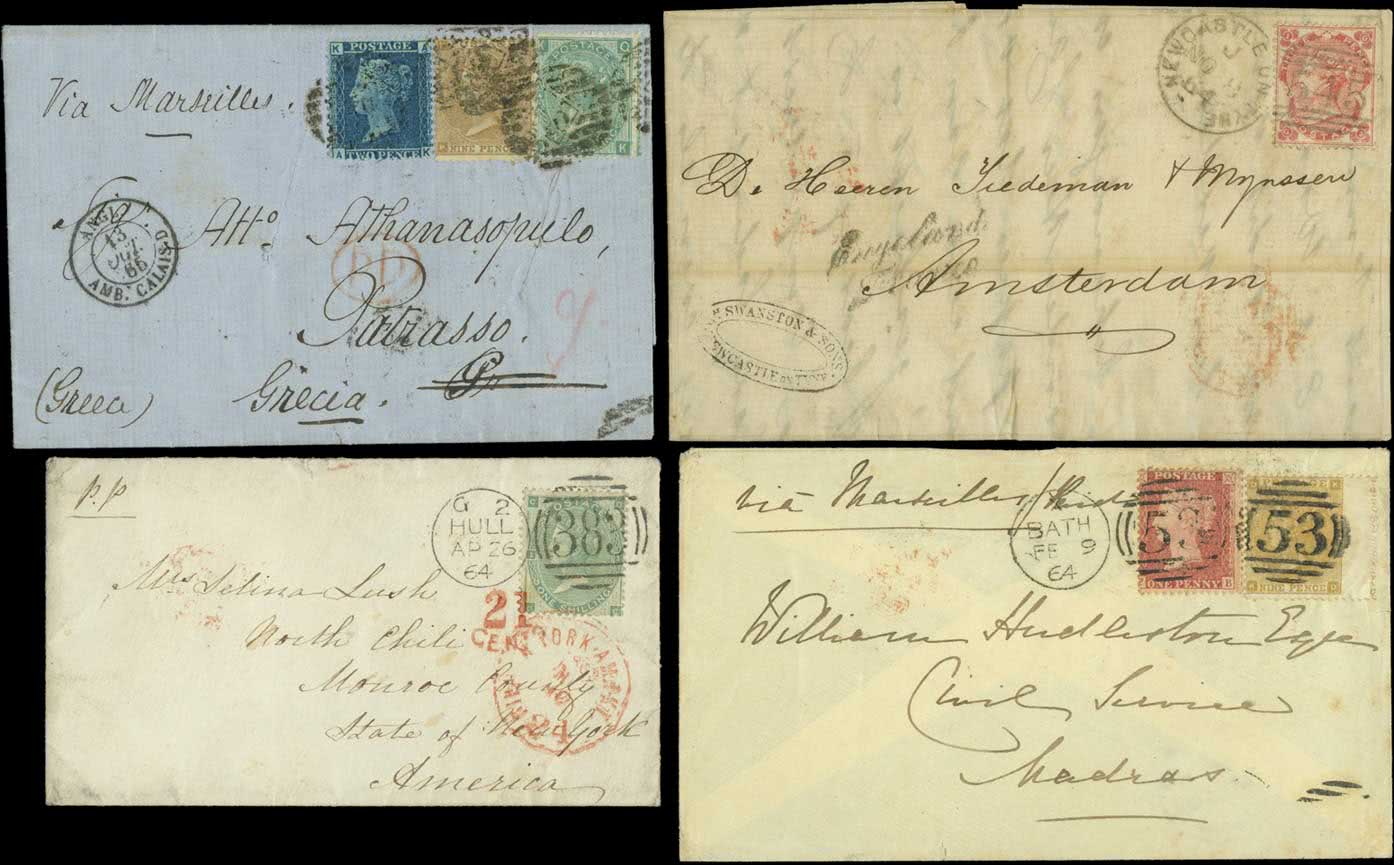 Via Marseilles.
K POSTAGE A
A TWO PENCE K
NINE PENCE
K
Q
K
ANGL.
13
66
AMB. CALAIS D
Atto. Athanasopulo,
PD
Patrasso.
(Greece) Grecia.
NEWCASTLE ON TYNE
J
NO 8
64
POSTAGE
De Heeren Tiedeman & Mynssen
Engeland.
Franco
Amsterdam
SWANSTON & SONS.
NEWCASTLE ON TYNE
p.p
G 2
HULL
AP 26
64
383
ONE SHILLING
Mrs Selina Lush
21
CENTS
North Chili
YORK AM. PKT
Monroe County
24
State of New York
America
via Marseilles
BATH
FE 9
64
POSTAGE
53
ONE PENNY B
53
NINE PENCE
William Hudleston Esqre
Civil Service
Madras.